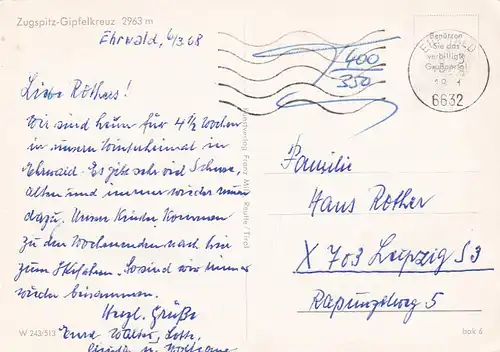 Zugspitz-Gipfelkreuz 2963 m
Ehrwald, 6/3.68
Liebe Rothers!
Wir sind heuer für 4 1/2 Wochen
in unserm Winterheimat in
Ehrwald. Es gibt sehr viel Schnee,
alten und immer wieder neuen
dazu. Unsere Kinder kommen
zu den Wochenenden nach hier
zum Skifahren. So sind wir immer
wieder beisammen.
Herzl. Grüße
Eure Walter, Lotte
u. Wolfgang
W 243/513
Kunstverlag Franz Milz Reutte/Tirol
400
350
Benützen
Sie das
verbilligte
6632
Familie
Hans Rother
X 703 Leipzig S3
Rapunzelweg 5
bok 6